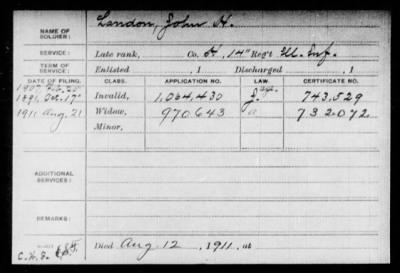 NAME OF SOLDIER: Landon, John H.
SERVICE: Late rank, Co. A, 14" Reg't Ill. Inf.
TERM OF SERVICE: Enlisted , 1 Discharged , 1
DATE OF FILING. CLASS. APPLICATION NO. LAW. CERTIFICATE NO.
1907 Feb. 25 age.
1891, Oct. 17" Invalid, 1,064,430 J. 743,529
1911 Aug. 21 Widow, 970643 a 732072
Minor,
ADDITIONAL SERVICES:
REMARKS:
C.H.F.
Died Aug. 12, 1911, at